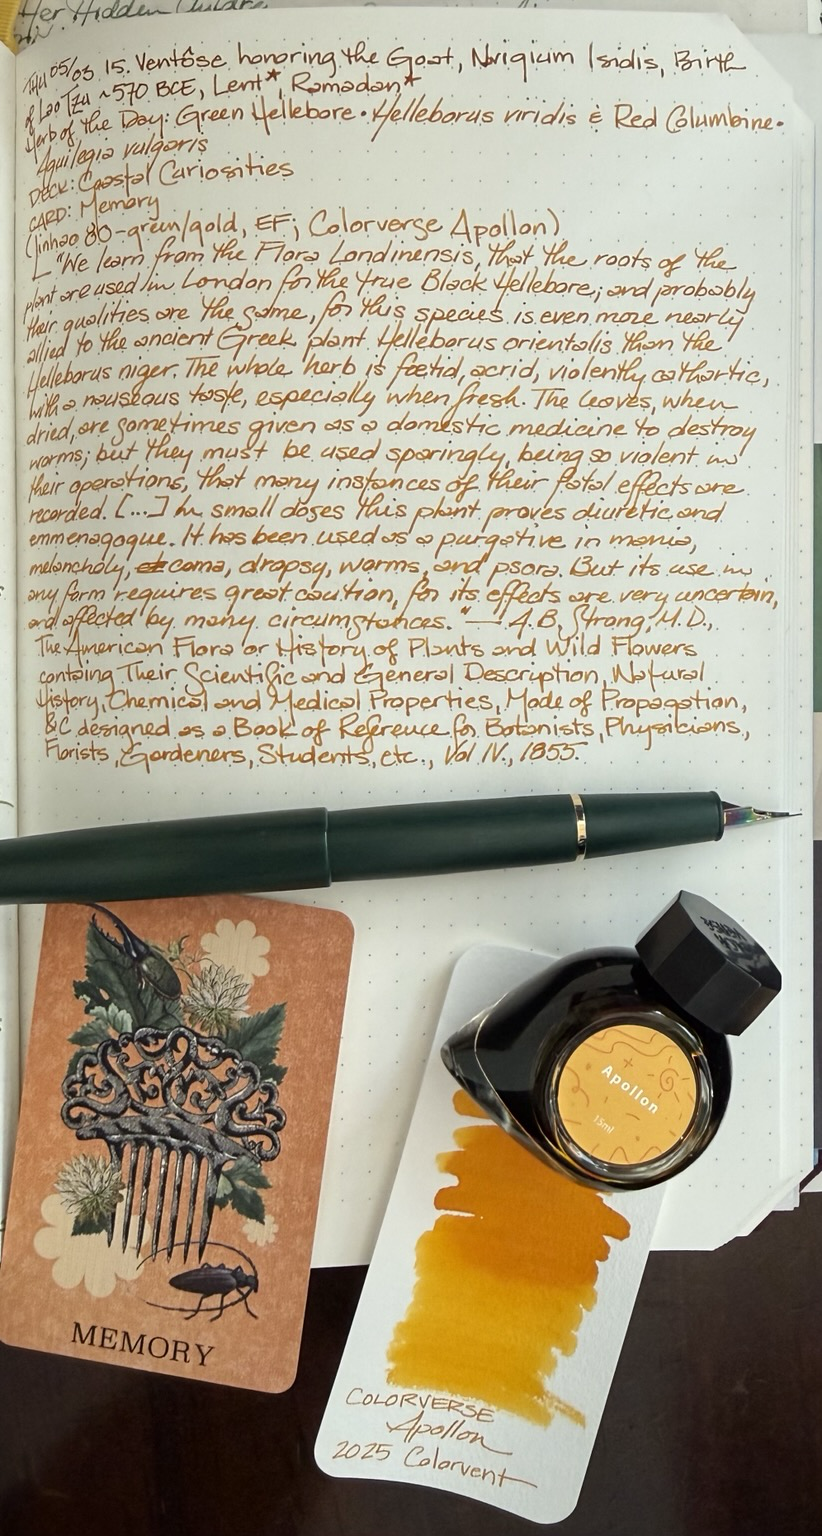 Her Hidden Children
THU 05/03 15. Ventôse honoring the Goat, Navigium Isidis, Birth
of Lao Tzu ~570 BCE, Lent*, Ramadan*
Herb of the Day: Green Hellebore • Helleborus viridis & Red Columbine •
Aquilegia vulgaris
DECK: Coastal Curiosities
CARD: Memory
(Jinhao 80-green/gold, EF; Colorverse Apollon)
"We learn from the Flora Londinensis, that the roots of the
plant are used in London for the true Black Hellebore; and probably
their qualities are the same, for this species is even more nearly
allied to the ancient Greek plant Helleborus orientalis than the
Helleborus niger. The whole herb is fœtid, acrid, violently cathartic,
with a nauseous taste, especially when fresh. The leaves, when
dried, are sometimes given as a domestic medicine to destroy
worms; but they must be used sparingly, being so violent in
their operations, that many instances of their fatal effects are
recorded. [...] In small doses this plant proves diuretic and
emmenagogue. It has been used as a purgative in mania,
melancholy, coma, dropsy, worms, and psora. But its use in
any form requires great caution, for its effects are very uncertain,
and affected by many circumstances." — A.B. Strong, M.D.,
The American Flora or History of Plants and Wild Flowers
containg Their Scientific and General Description, Natural
History, Chemical and Medical Properties, Mode of Propagation,
&C designed as a Book of Reference for Botanists, Physicians,
Florists, Gardeners, Students, etc., Vol IV., 1855.
Apollon
15ml
MEMORY
COLORVERSE
Apollon
2025 Colorvent